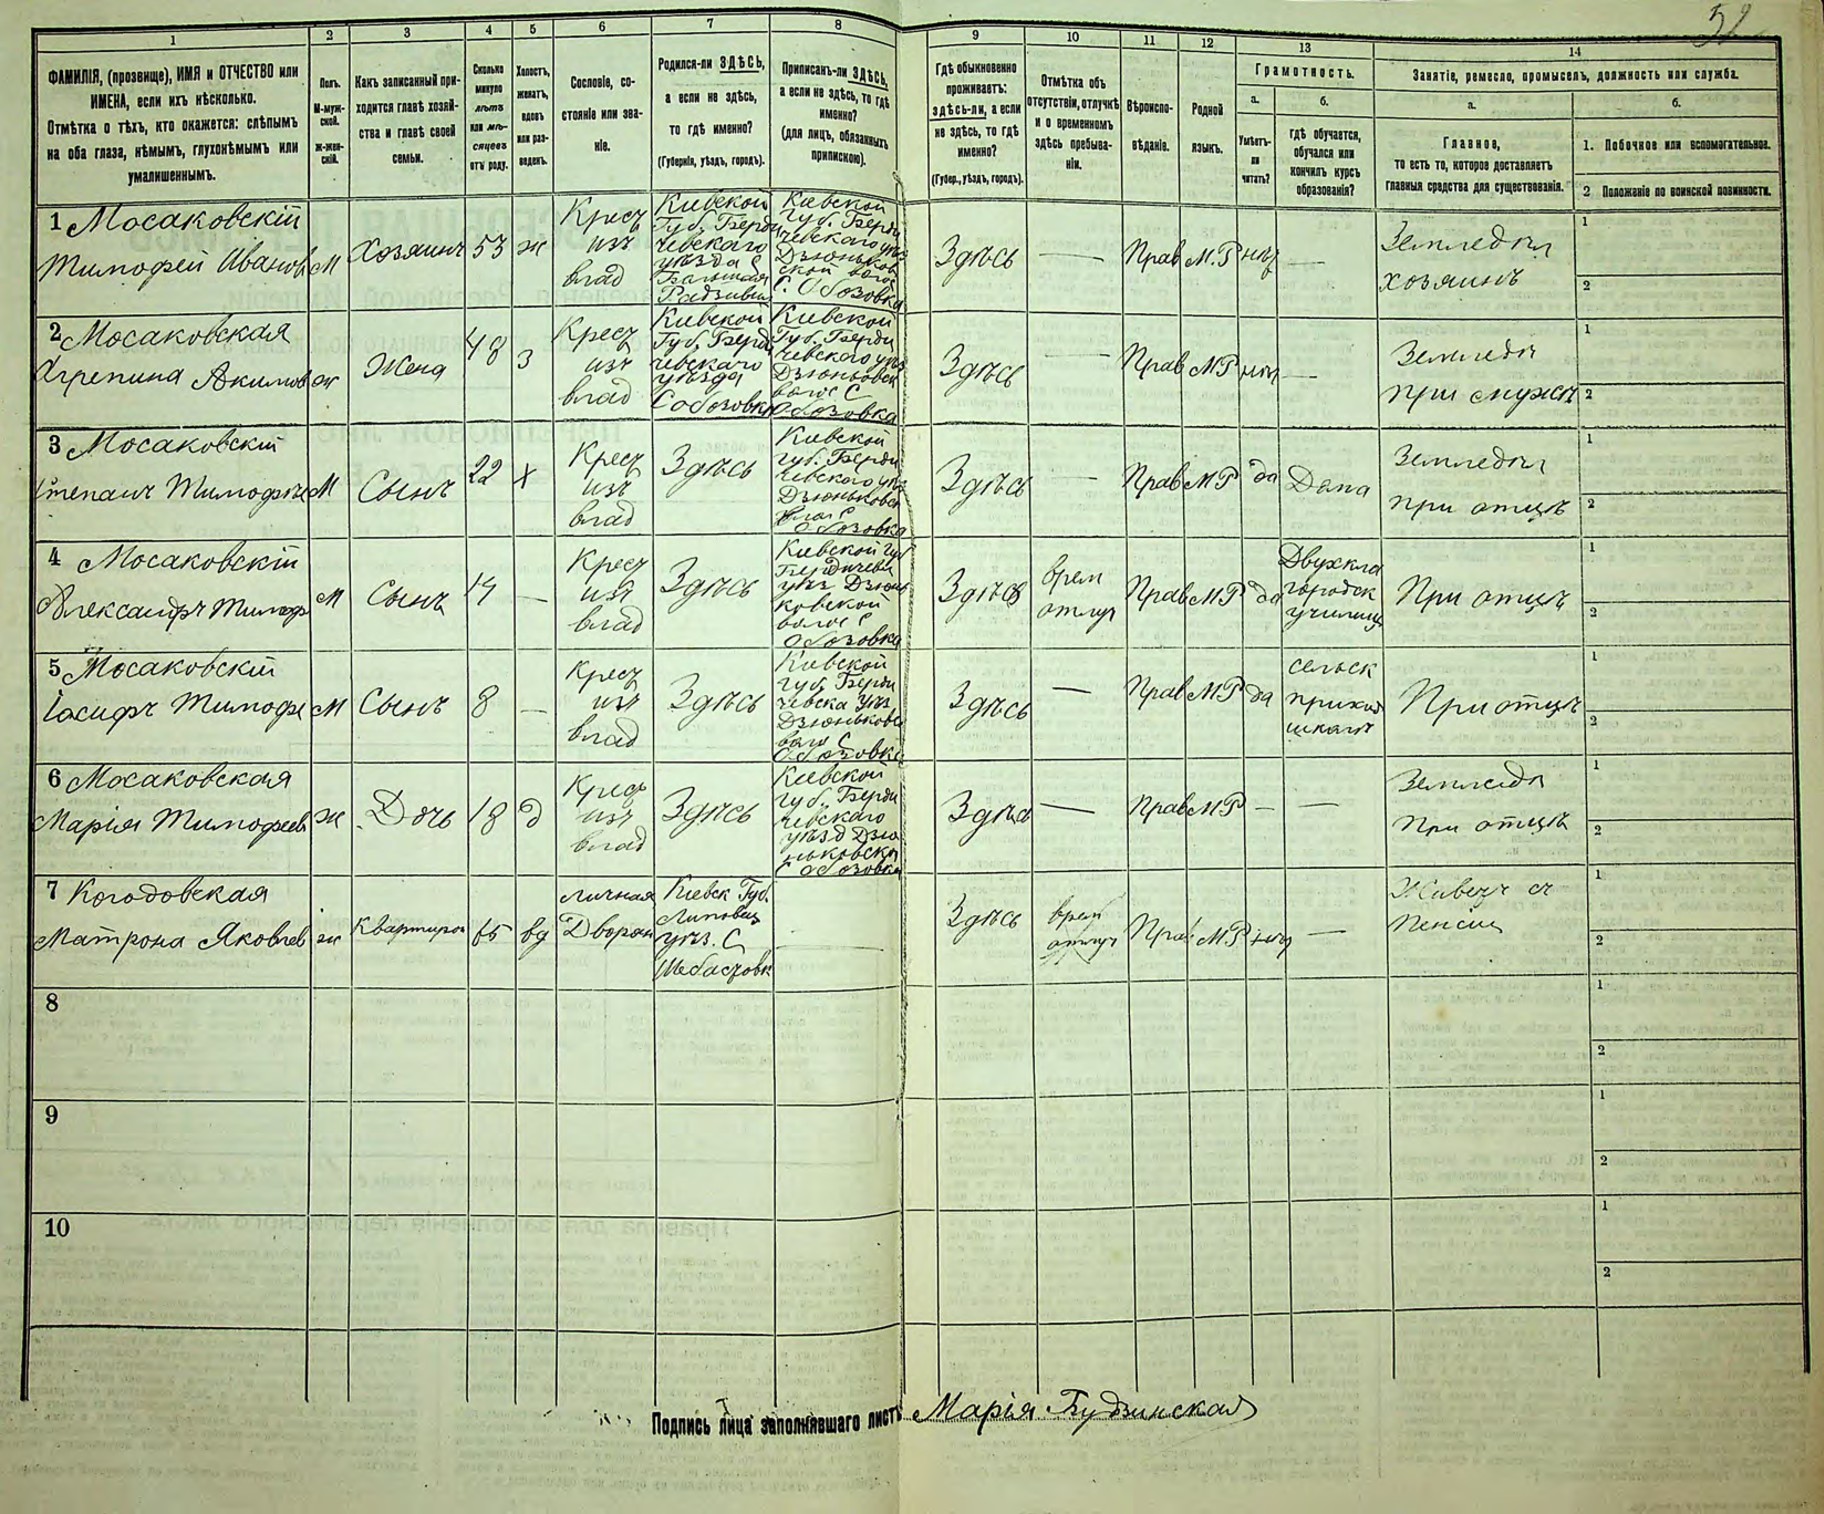 52
1 2 3 4 5 6 7 8 9 10 11 12 13 14
ФАМИЛІЯ, (прозвище), ИМЯ и ОТЧЕСТВО или
ИМЕНА, если ихъ нѣсколько.
Отмѣтка о тѣхъ, кто окажется: слѣпымъ
на оба глаза, нѣмымъ, глухонѣмымъ или
умалишеннымъ.
Полъ.
М-муж-
ской.
ж-жен-
скій.
Какъ записанный при-
ходится главѣ хозяй-
ства и главѣ своей
семьи.
Сколько
минуло
лѣтъ
или мѣ-
сяцевъ
отъ роду.
Холостъ,
женатъ,
вдовъ
или раз-
веденъ.
Сословіе, со-
стояніе или зва-
ніе.
Родился-ли ЗДѢСЬ,
а если не здѣсь,
то гдѣ именно?
(Губернія, уѣздъ, городъ).
Приписанъ-ли ЗДѢСЬ,
а если не здѣсь, то гдѣ
именно?
(для лицъ, обязанныхъ
припискою).
Гдѣ обыкновенно
проживаетъ:
здѣсь-ли, а если
не здѣсь, то гдѣ
именно?
(Губер., уѣздъ, городъ).
Отмѣтка объ
отсутствіи, отлучкѣ
и о временномъ
здѣсь пребыва-
ніи.
Вѣроиспо-
вѣданіе.
Родной
языкъ.
Грамотность.
а.
Умѣетъ-
ли
читать?
б.
гдѣ обучается,
обучался или
кончилъ курсъ
образованія?
Занятіе, ремесло, промыселъ, должность или служба.
а.
Главное,
то есть то, которое доставляетъ
главныя средства для существованія.
б.
1. Побочное или вспомогательное.
2 Положеніе по воинской повинности.
1 Мосаковскій
Тимофей Иванов
М
Хозяинъ
53
ж
Крест
изъ
влад
Кіевской
Губ. Берди
чевскаго
уѣзда С
Большая
Кіевской
губ. Берди
чевскаго уѣз
Дзюньков
ской волос
С. Обозовка
Здѣсь
—
Прав
М.Р
нѣт
—
Земледѣл
хозяинъ
1
2
2 Мосаковская
Агрепина Акимов
ж
Жена
48
З
Крест
изъ
влад
Кіевской
Губ. Берди
чевскаго
уѣзда
С Обозовка
Кіевской
Губ. Берди
чевскаго уѣз
волос С
Обозовка
Здѣсь
—
Прав
МР
нѣт
—
Земледѣл
при мужѣ
1
2
3 Мосаковскій
Степанъ Тимофѣе
М
Сынъ
22
х
Крест
изъ
влад
Здѣсь
Кіевской
губ. Берди
чевскаго уѣз
Дзюньковск
волос С
Обозовка
Здѣсь
—
Прав
МР
да
Дома
Земледѣл
при отцѣ
1
2
4 Мосаковскій
Александръ Тимоф
М
Сынъ
14
—
Крест
изъ
влад
Здѣсь
Кіевской Губ
Бердичевск
уѣз Дзюнь
ковской
волос С
Обозовка
Здѣсь
врем
отлуч
Прав
МР
да
Двухкла
городск
училищ
При отцѣ
1
2
5 Мосаковскій
Іосифъ Тимофе
М
Сынъ
8
—
Крест
изъ
влад
Здѣсь
Кіевской
губ. Берди
чевска уѣз
Дзюньковск
волос С
Обозовка
Здѣсь
—
Прав
МР
да
сельск
приход
школѣ
При отцѣ
1
2
6 Мосаковская
Марія Тимофеев
ж
Дочь
18
д
Крест
изъ
влад
Здѣсь
Кіевской
губ. Берди
чевскаго
уѣзд Дзю
ньковской
С Обозовка
Здѣсь
—
Прав
МР
—
—
Земледѣл
При отцѣ
1
2
7
Матрона Яковлев
ж
Квартиран
65
вд
личная
Дворян
Кіевск Губ.
Липовец
уѣз. С
—
Здѣсь
врем
отлуч
Прав
МР
нѣт
—
Живетъ съ
пенсіи
1
2
8
1
2
9
1
2
10
1
2
Подпись лица заполнявшаго листъ Марія Будзинская